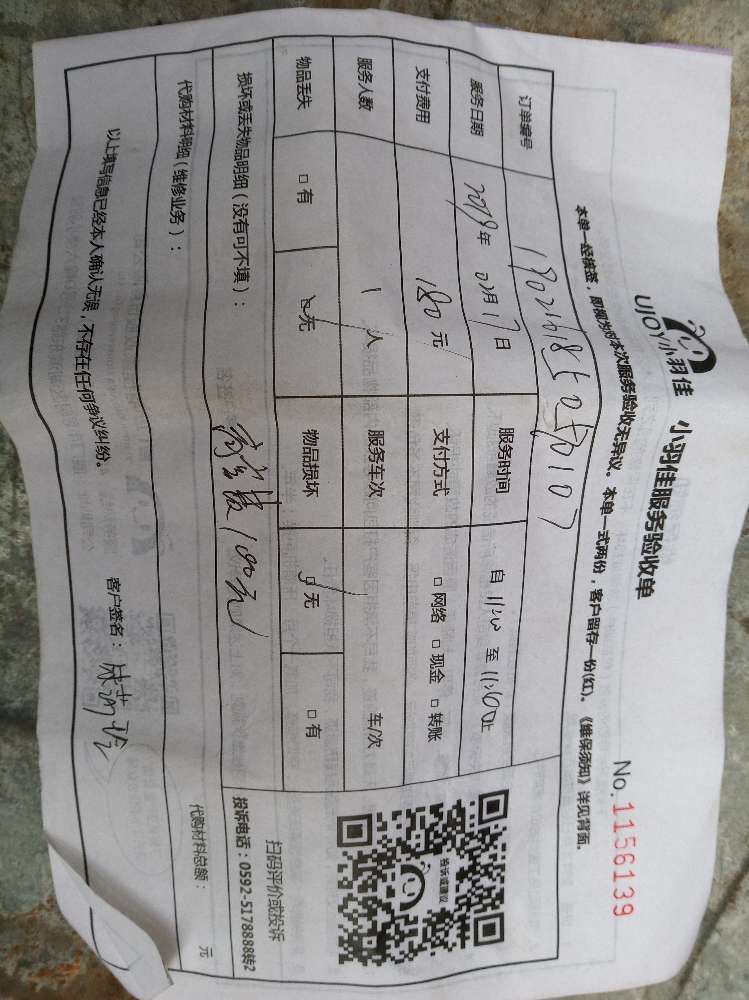 UJOY小羽佳 小羽佳服务验收单
No.1156139
本单一经候签，即视为对本次服务验收无异议。本单一式两份，客户留存一份(红)。《维保须知》详见背面。
订单编号
服务日期 2019年 02月17日 服务时间 自 11:00 至
支付费用 180元 支付方式 □网络 □现金 □转账
服务人数 1人 服务车次 车/次
物品丢失 □有 □无 物品损坏 □无 □有
损坏或丢失物品明细（没有可不填）：
100元
代购材料明细（维修业务）：
代购材料总额： 元
以上填写信息已经本人确认无误，不存在任何争议纠纷。
客户签名：
投诉或建议
扫码评价或投诉
投诉电话：0592-5178888转2